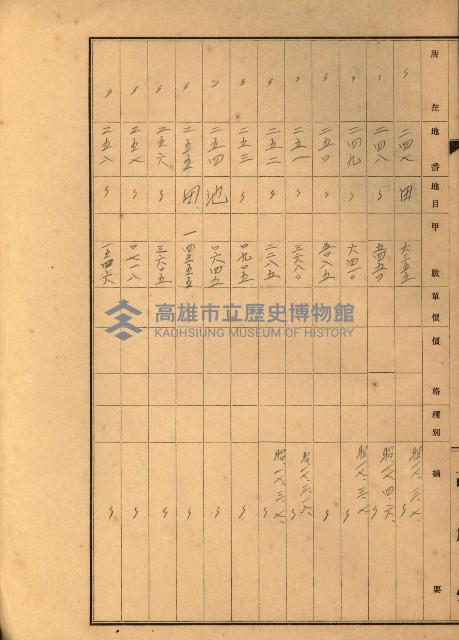 所在
地番
地目
甲數
單價
價格
種別
摘要
〃 二四七 田 六二五五 昭一七、三、七、〃
〃 二四八 〃 五四五〇 昭一八、四、六、〃
〃 二四九 〃 六四一〇 昭一七、三、七、〃
〃 二五〇 〃 五〇八五 〃
〃 二五一 〃 三六八〇 昭一七、三、一六、〃
〃 二五二 〃 二二八五 昭一七、三、七、〃
〃 二五三 〃 〇九〇五 〃
〃 二五四 池 〇六四五 〃
〃 二五五 田 一四三五五 〃
〃 二五六 〃 三六〇五 〃
〃 二五七 〃 〇七一八 〃
〃 二五八 〃 一五四六 〃
高雄市立歷史博物館
KAOHSIUNG MUSEUM OF HISTORY